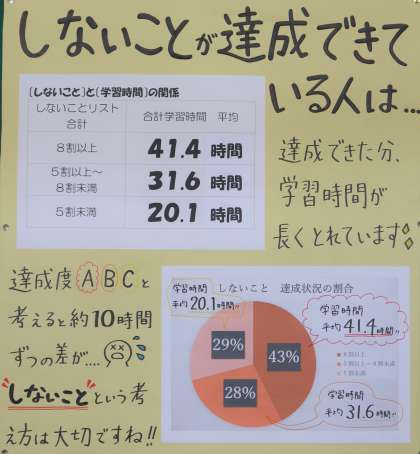 しないことが達成できて
いる人は…
〔しないこと〕と〔学習時間〕の関係
しないことリスト
合計
合計学習時間 平均
8割以上
41.4 時間
5割以上~
8割未満
31.6 時間
5割未満
20.1 時間
達成できた分、
学習時間が
長くとれています
達成度ABCと
考えると約10時間
ずつの差が…
しないことという考
え方は大切ですね!!
しないこと 達成状況の割合
学習時間
平均20.1時間!!
学習時間
平均41.4時間!!
29%
43%
28%
8割以上
5割以上~8割未満
5割未満
学習時間
平均31.6時間!!